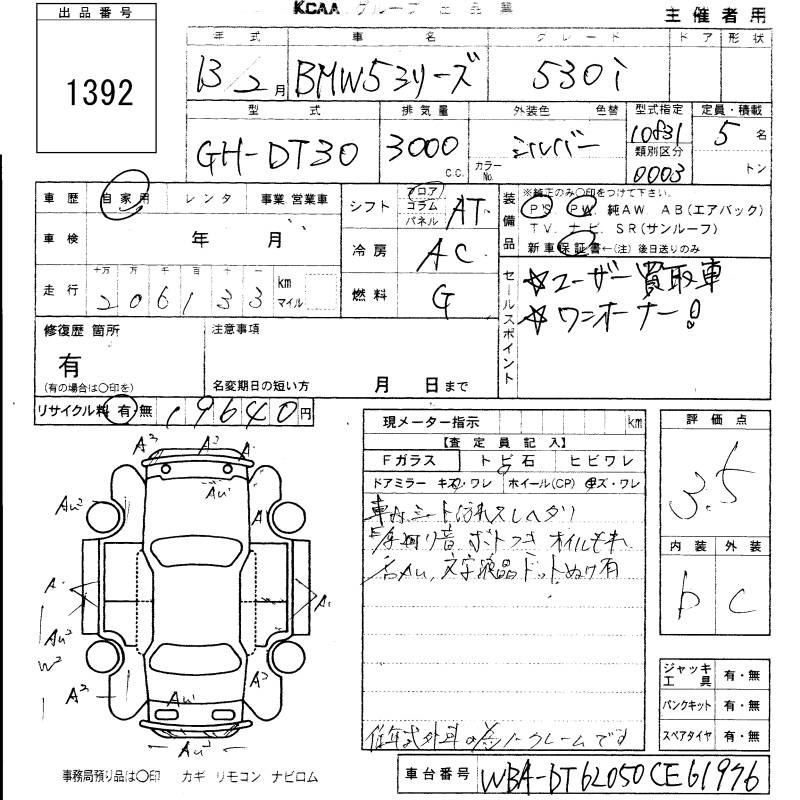 KCAA グループ 出品票
主催者用
出品番号
1392
年式 車名 グレード ドア 形状
13/2月 BMW5シリーズ 530i
型式 排気量 外装色 色替 型式指定 定員・積載
GH-DT30 3000 C.C. カラーNo. シルバー 10831 5名
類別区分
0003 トン
車歴 自家用 レンタ 事業 営業車
シフト フロア コラム パネル AT
装備品 ※純正のみ○印をつけて下さい。
PS PW 純AW AB(エアバック)
TV ナビ SR(サンルーフ)
新車保証書←(注)後日送りのみ
車検 年 月
冷房 AC
走行 十万 万 千 百 十 一 km マイル
206133
燃料 G
セールスポイント
☆ユーザー買取車
☆ワンオーナー!
修復歴 箇所
有
(有の場合は○印を)
注意事項
名変期日の短い方 月 日まで
リサイクル料 有・無 19640円
現メーター指示 km
【査定員記入】
Fガラス トビ石 ヒビワレ
ドアミラー キズ・ワレ ホイール(CP) キズ・ワレ
車内シート汚れスレヘタリ
オイルモレ
文字液晶ドットぬけ有
ノークレームです
評価点
3.5
内装 外装
b C
ジャッキ 工具 有・無
パンクキット 有・無
スペアタイヤ 有・無
A3 A2 A
Au1
Au2 A1
A A1
Au2
W2
A3 A2
Au1
Au2
事務局預り品は○印 カギ リモコン ナビロム
車台番号 WBA-DT62050CE61976